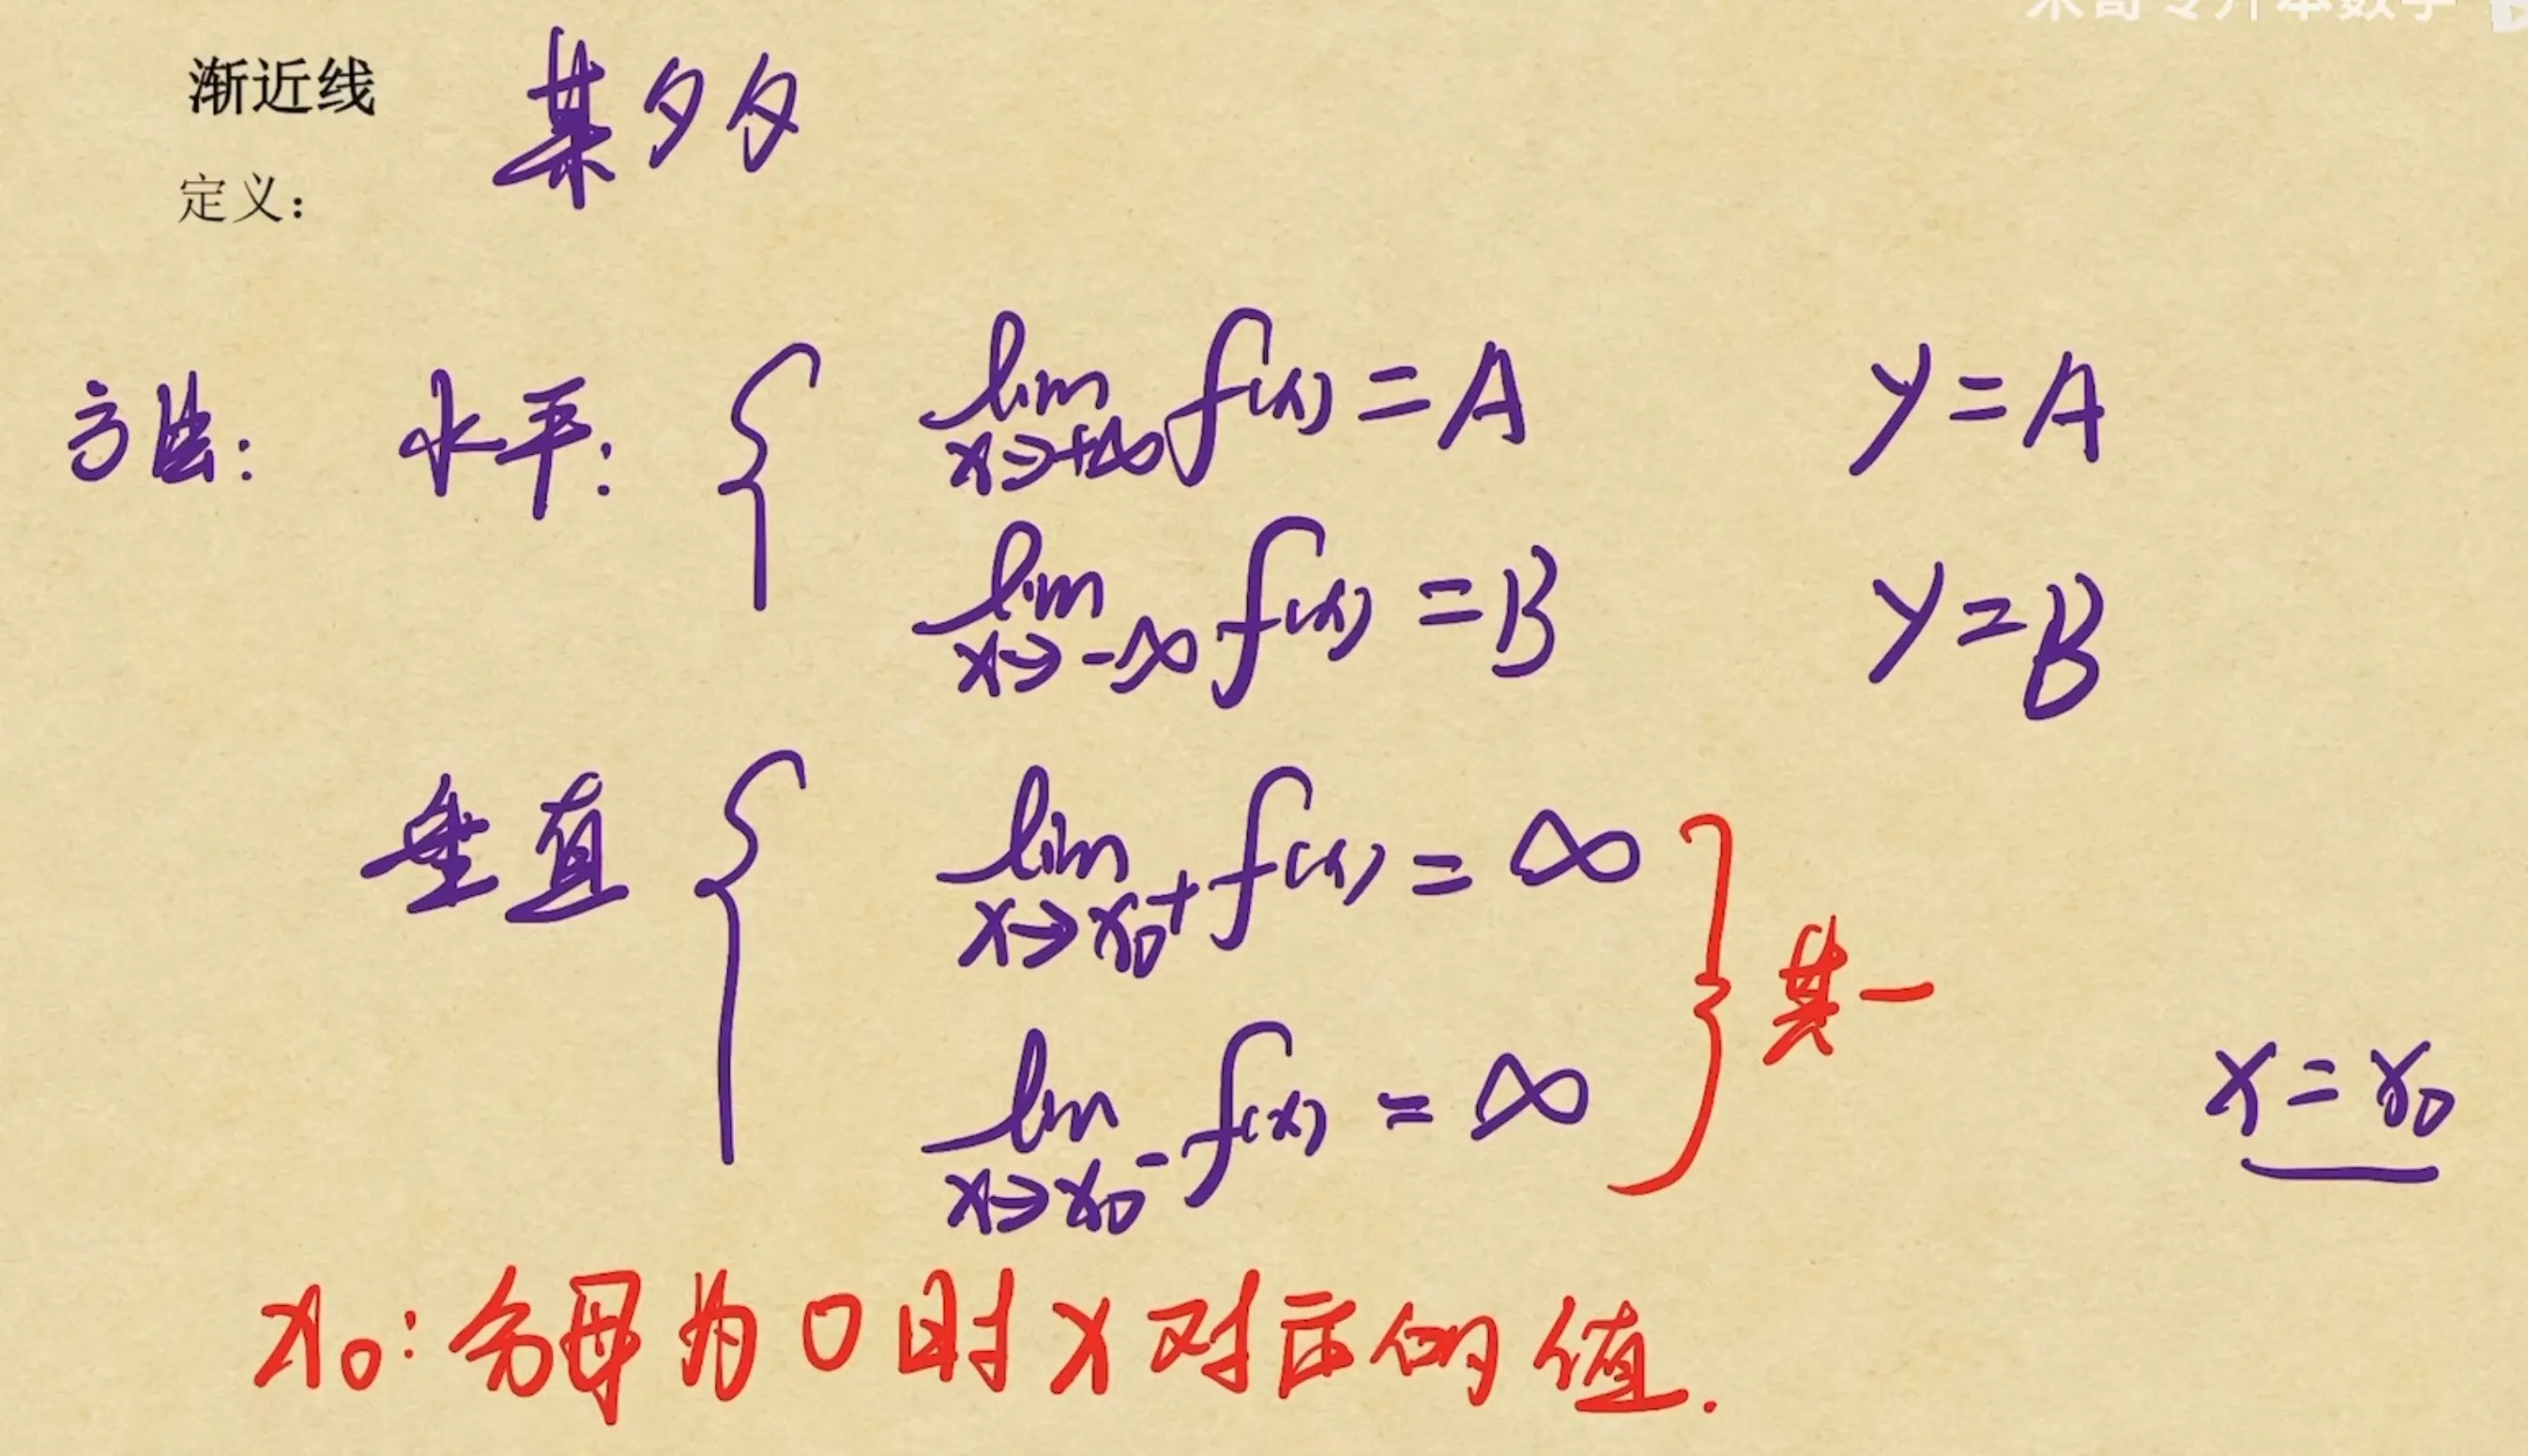 渐近线 某夕夕
定义：
方法: 水平: { lim x→+∞ f(x) = A y = A
lim x→-∞ f(x) = B y = B
垂直 { lim x→x₀⁺ f(x) = ∞
} 其一
lim x→x₀⁻ f(x) = ∞ x = x₀
x₀: 分母为0时x对应的值.